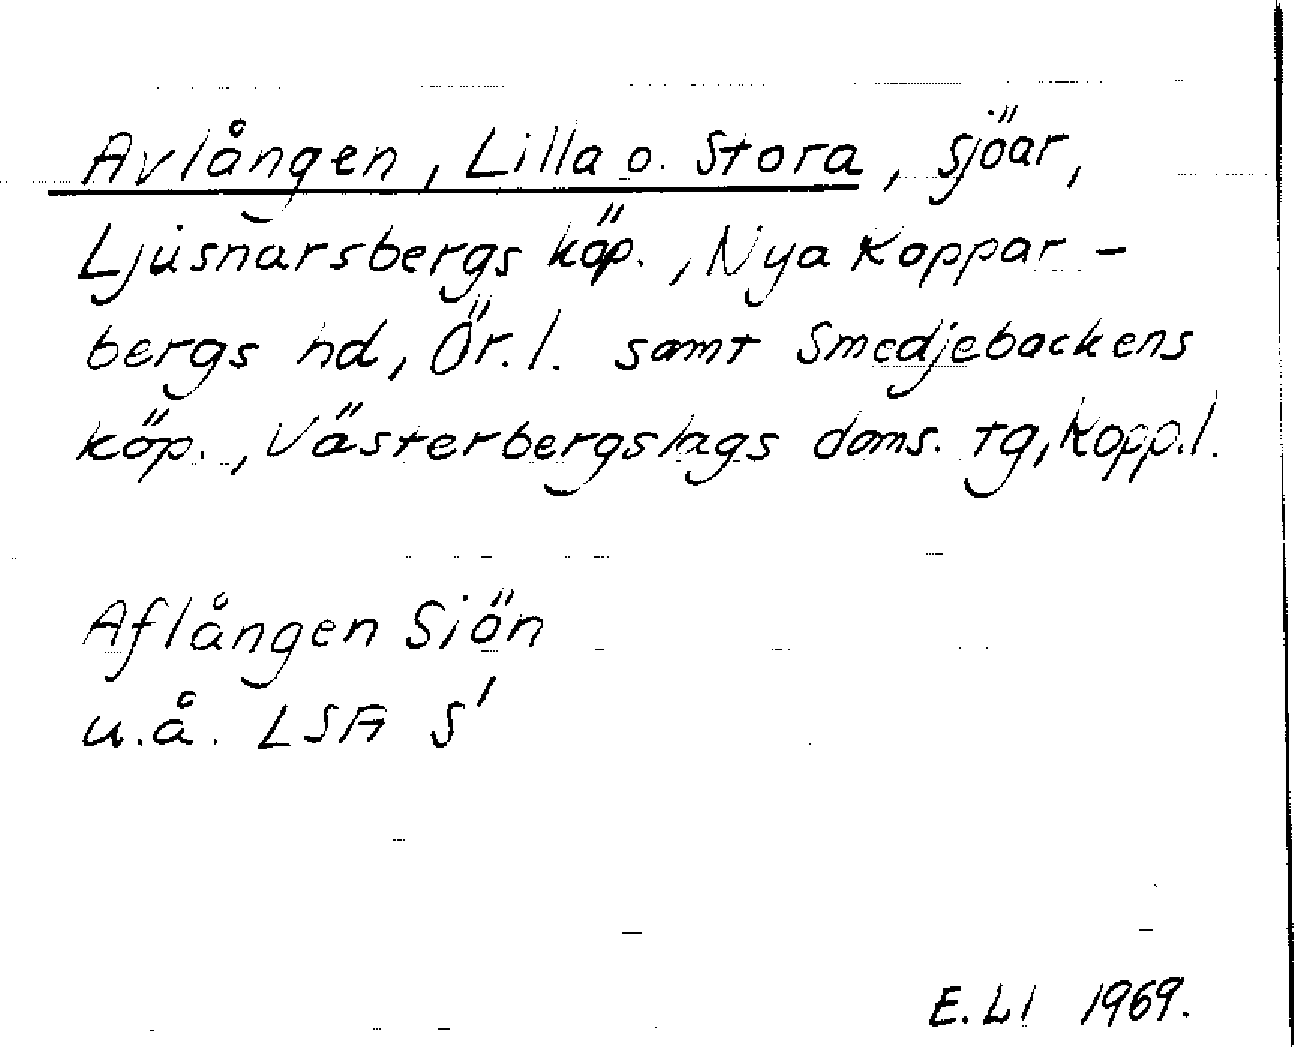 Avlången, Lilla o. Stora, sjöar,
Ljusnarsbergs köp., Nya Koppar-
bergs hd, Ör. l. samt Smedjebackens
köp., Västerbergslags doms. tg, Kopp. l.
Aflången Siön
u.å. LSA S'
E. Ll 1969.